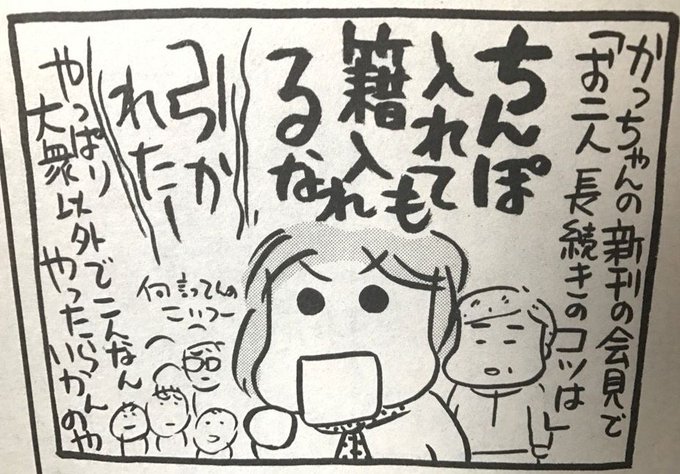 かっちゃんの新刊の会見で
「お二人 長続きのコツは」
ちんぽ
入れても
籍入れ
るな
引か
れたー
何言ってんの
こいつー
やっぱり
大衆以外でこんなん
やったらいかんのや